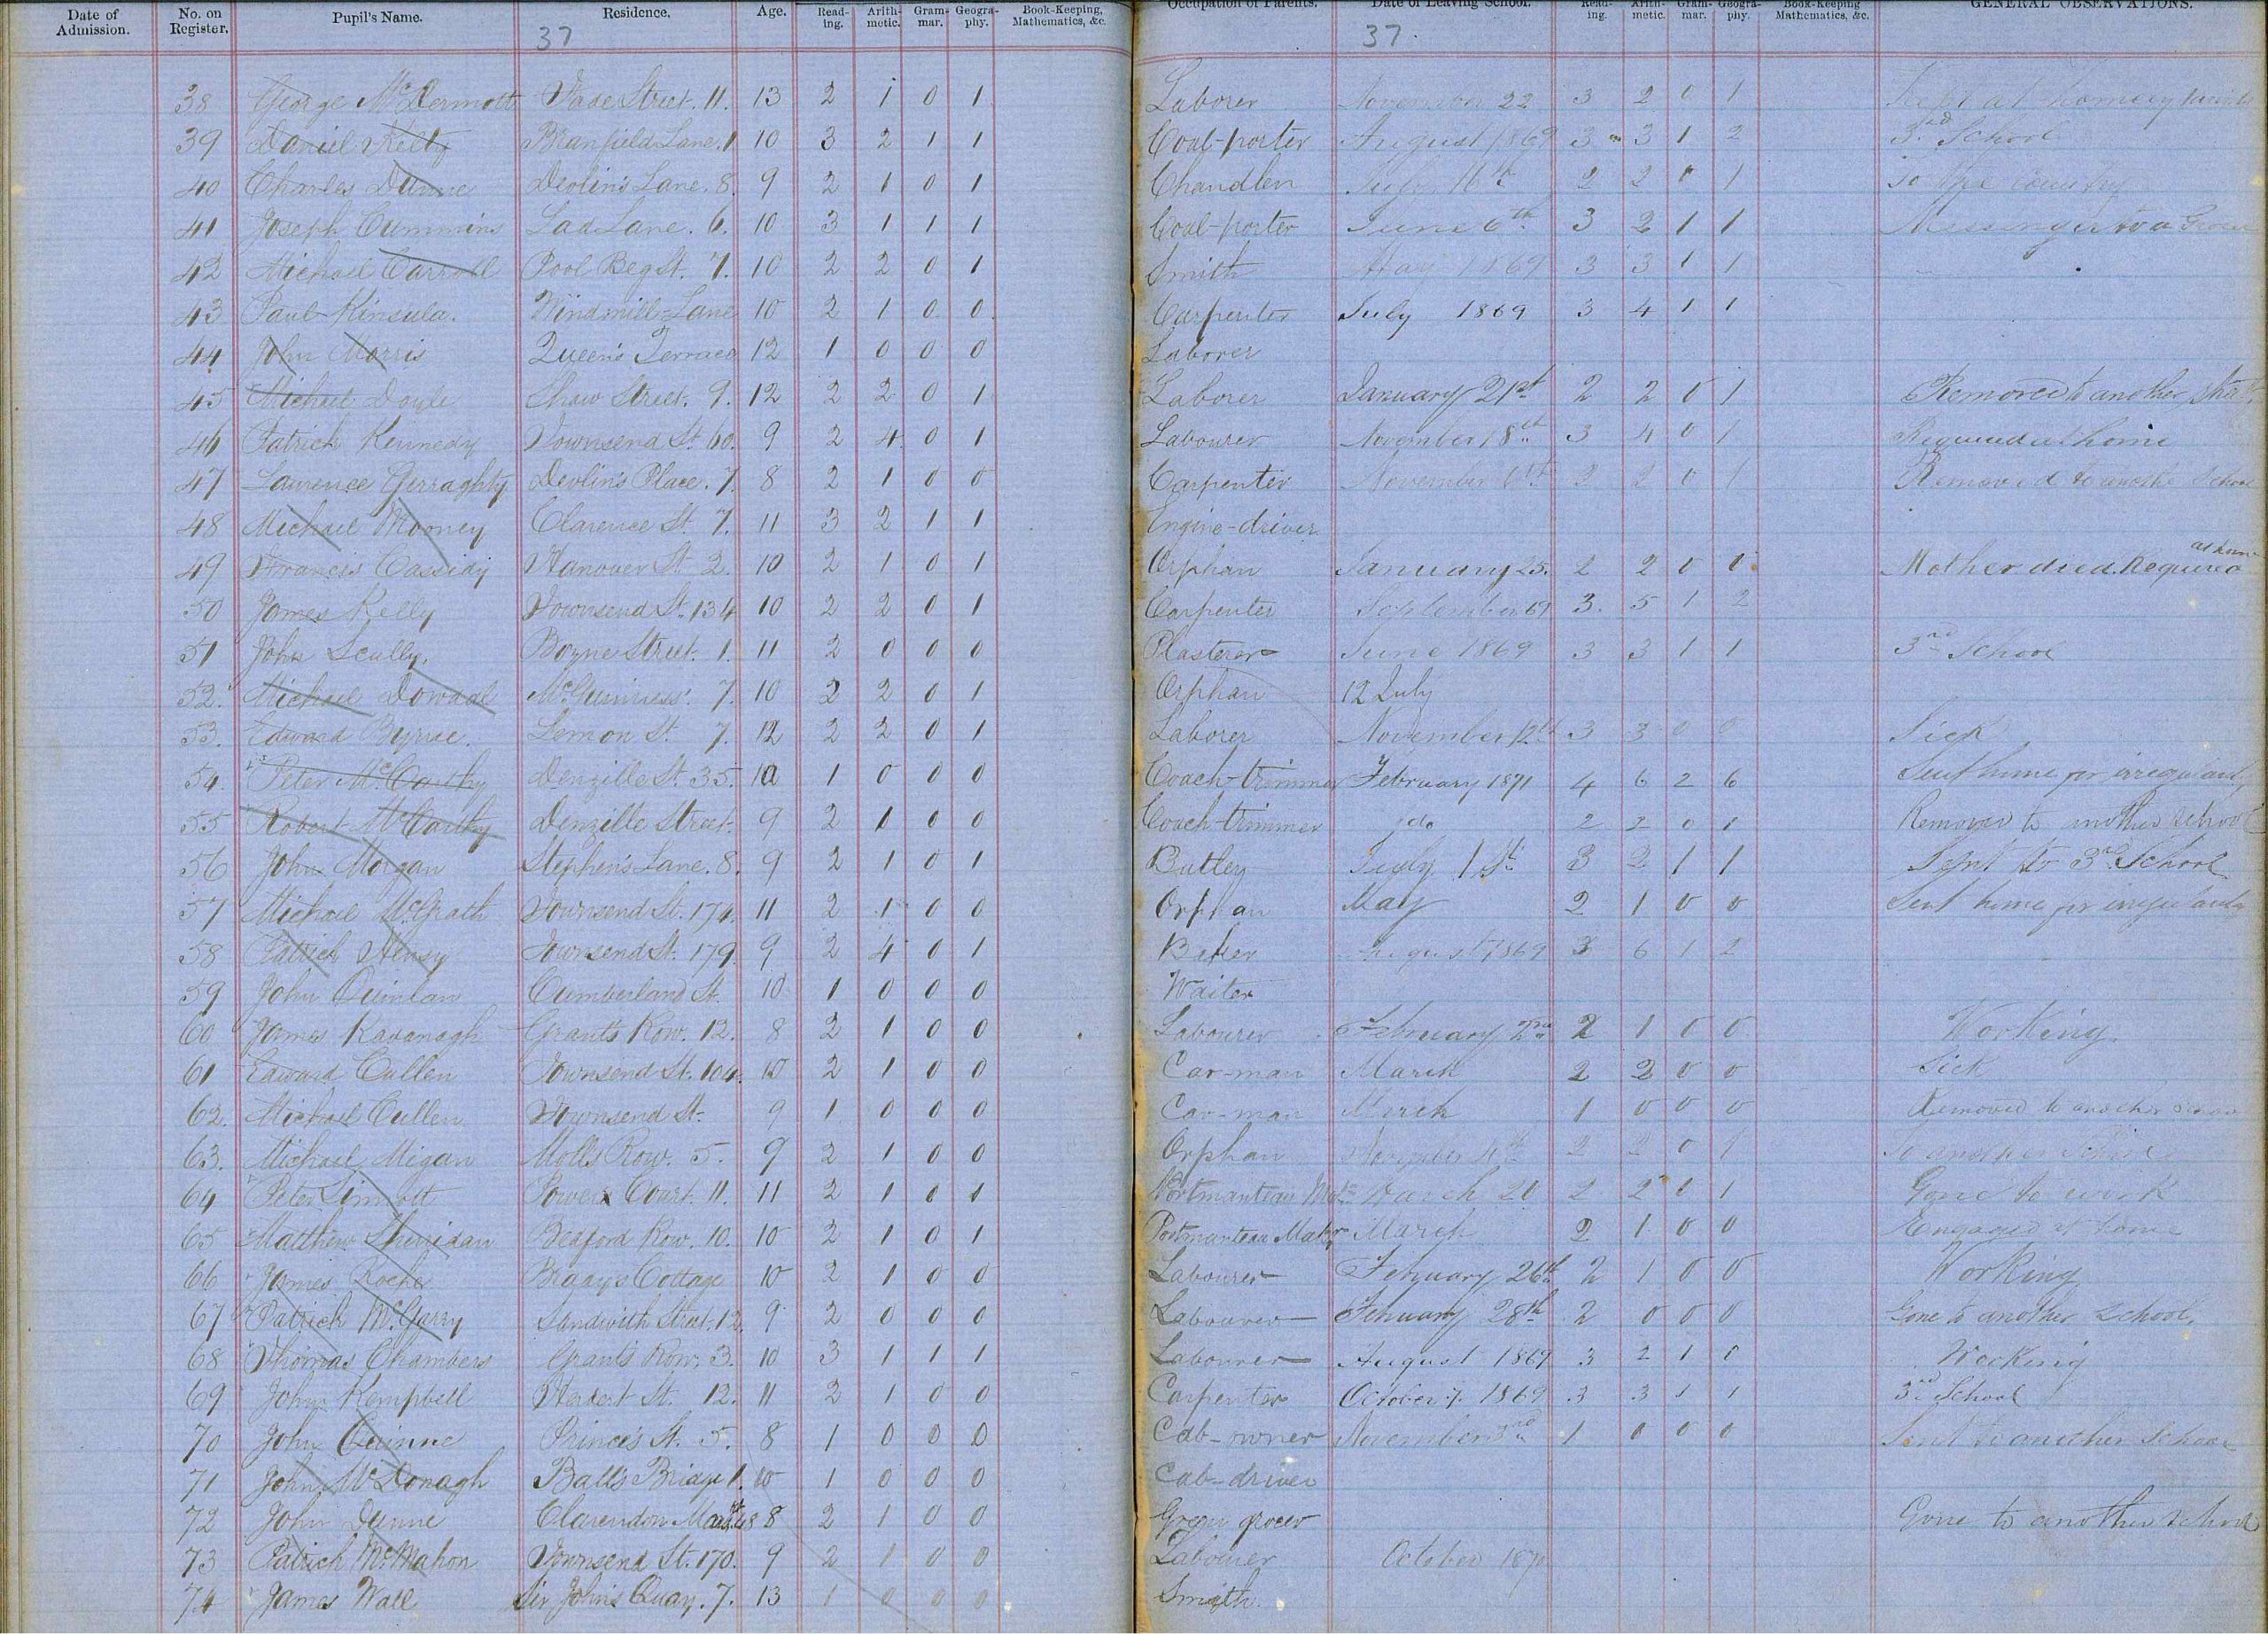 Date of Admission. No. on Register. Pupil's Name. Residence. Age. Read-ing. Arith-metic. Gram-mar. Geogra-phy. Book-Keeping, Mathematics, &c. Occupation of Parents. Date of Leaving School. Read-ing. Arith-metic. Gram-mar. Geogra-phy. Book-Keeping Mathematics, &c. GENERAL OBSERVATIONS.
37 37
38 George McDermott Wade Street. 11. 13 2 1 0 1 Laborer November 22 3 2 0 1 Kept at home by
39 Daniel Kelty Branfield Lane. 1 10 3 2 1 1 Coal-porter August 1869 3 3 1 2 3rd School
40 Charles Dunne Devlin's Lane. 8. 9 2 1 0 1 Chandler July 16th 2 2 0 1 To the country
41 Joseph Cummins Lad Lane. 6. 10 3 1 1 1 Coal-porter June 6th 3 2 1 1 Messenger to a Grocer
42 Michael Carroll Pool Beg St. 7. 10 2 2 0 1 Smith May 1869 3 3 1 1
43 Paul Kinsula. Windmill-Lane 10 2 1 0 0 Carpenter July 1869 3 4 1 1
44 John Morris Queen's Terrace 12 1 0 0 0 Laborer
45 Michael Doyle Shaw Street. 9. 12 2 2 0 1 Laborer January 21st 2 2 0 1 Removed to another
46 Patrick Kennedy Townsend St. 60. 9 2 4 0 1 Labourer November 18th 3 4 0 1 Required at home
47 Laurence Gerraghty Devlin's Place. 7. 8 2 1 0 0 Carpenter November 6th 2 2 0 1 Removed to anothe School
48 Michael Mooney Clarence St. 7. 11 3 2 1 1 Engine-driver
49 Francis Cassidy Hanover St. 2. 10 2 1 0 1 Orphan January 25. 2 2 0 1 Mother died. Required at home
50 James Kelly Townsend St. 134 10 2 2 0 1 Carpenter September 69 3. 5 1 2
51 John Scully. Boyne Street. 1. 11 2 0 0 0 Plasterer June 1869 3 3 1 1 3rd School
52. Michael Dowdal McGuinness' 7. 10 2 2 0 1 Orphan 12 July
53. Edward Byrne. Lemon St. 7. 12 2 2 0 1 Laborer November 12th 3 3 0 0 Sick
54. Peter McCarthy Denzille St. 35. 10 1 0 0 0 Coach-trimmer February 1871 4 6 2 6 Sent home for irregularity
55 Robert McCarthy Denzille Street. 9 2 1 0 0 Coach-trimmer do 2 2 0 1 Removed to another school
56 John Morgan Stephen's Lane. 8. 9 2 1 0 1 Butler July 1st 3 2 1 1 Sent to 3rd School
57 Michael McGrath Townsend St. 174. 11 2 1 0 0 Orphan May 2 1 0 0 Sent home for irregularity
58 Patrick Henry Townsend St. 179. 9 2 4 0 1 Baker August 1869 3 6 1 2
59 John Quinlan Cumberland St. 10 1 0 0 0 Waiter
60 James Kavanagh Grant's Row. 12. 8 2 1 0 0 Labourer February 2nd 2 1 0 0 Working.
61 Edward Cullen Townsend St. 104. 10 2 1 0 0 Car-man March 2 2 0 0 Sick
62. Michael Cullen Townsend St. 9 1 0 0 0 Car-man March 1 0 0 0 Removed to another School
63. Michael Migan Moll's Row. 5. 9 2 1 0 0 Orphan November 2 2 0 1 To another School
64 Peter Sinnott Power's Court. 11. 11 2 1 0 1 Portmanteau Mkr March 20 2 2 0 1 Gone to work
65 Matthew Sheridan Bedford Row. 10. 10 2 1 0 1 Portmanteau Maker March 2 1 0 0 Engaged at home
66 James Roche Brady's Cottage 10 2 1 0 0 Labourer February 26th 2 1 0 0 Working
67 Patrick McGarry Sandwith Street. 12. 9 2 0 0 0 Labourer February 28th 2 0 0 0 Gone to another School,
68 Thomas Chambers Grant's Row. 3. 10 3 1 1 1 Labourer August 1869 3 2 1 0 Working
69 John Kempbell Herbert St. 12. 11 2 1 0 0 Carpenter October 1869 3 3 1 1 3rd School
70 John Quinne Prince's St. 5. 8 1 0 0 0 Cab-owner November 3rd 1 0 0 0 Sent to another School
71 John McDonagh Ball's Bridge 1. 10 1 0 0 0 Cab-driver
72 John Dunne Clarendon Market 48 8 2 1 0 0 Green grocer Gone to another school
73 Patrick McMahon Townsend St. 170. 9 2 1 0 0 Labourer October 1870
74 James Wall Sir John's Quay. 7. 13 1 0 0 0 Smith.